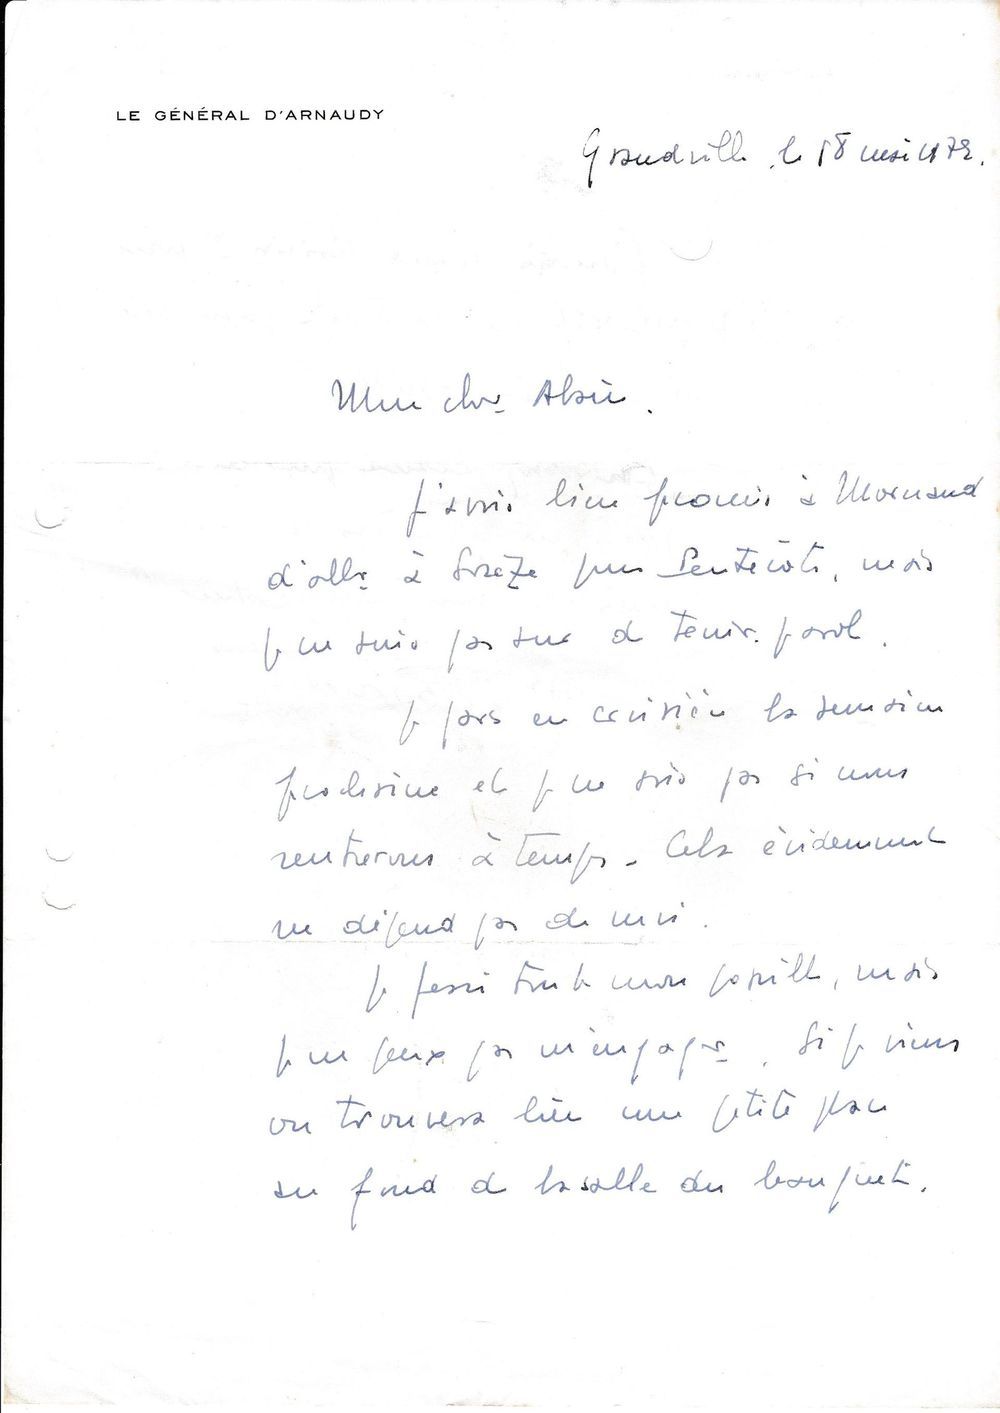 LE GÉNÉRAL D'ARNAUDY
Grandville, le 18 mai 1972.
Mon cher Alain.
J'avais bien promis à Mornand
d'aller à Sorèze pour Pentecôte, mais
je ne suis pas sur de tenir parole.
Je pars en croisière la semaine
prochaine et je ne sais pas si nous
rentrerons à temps - Cela évidemment
ne dépend pas de moi.
Je ferai tout mon possible, mais
je ne peux pas m'engager. Si je viens
on trouvera bien une petite place
au fond de la salle du banquet.